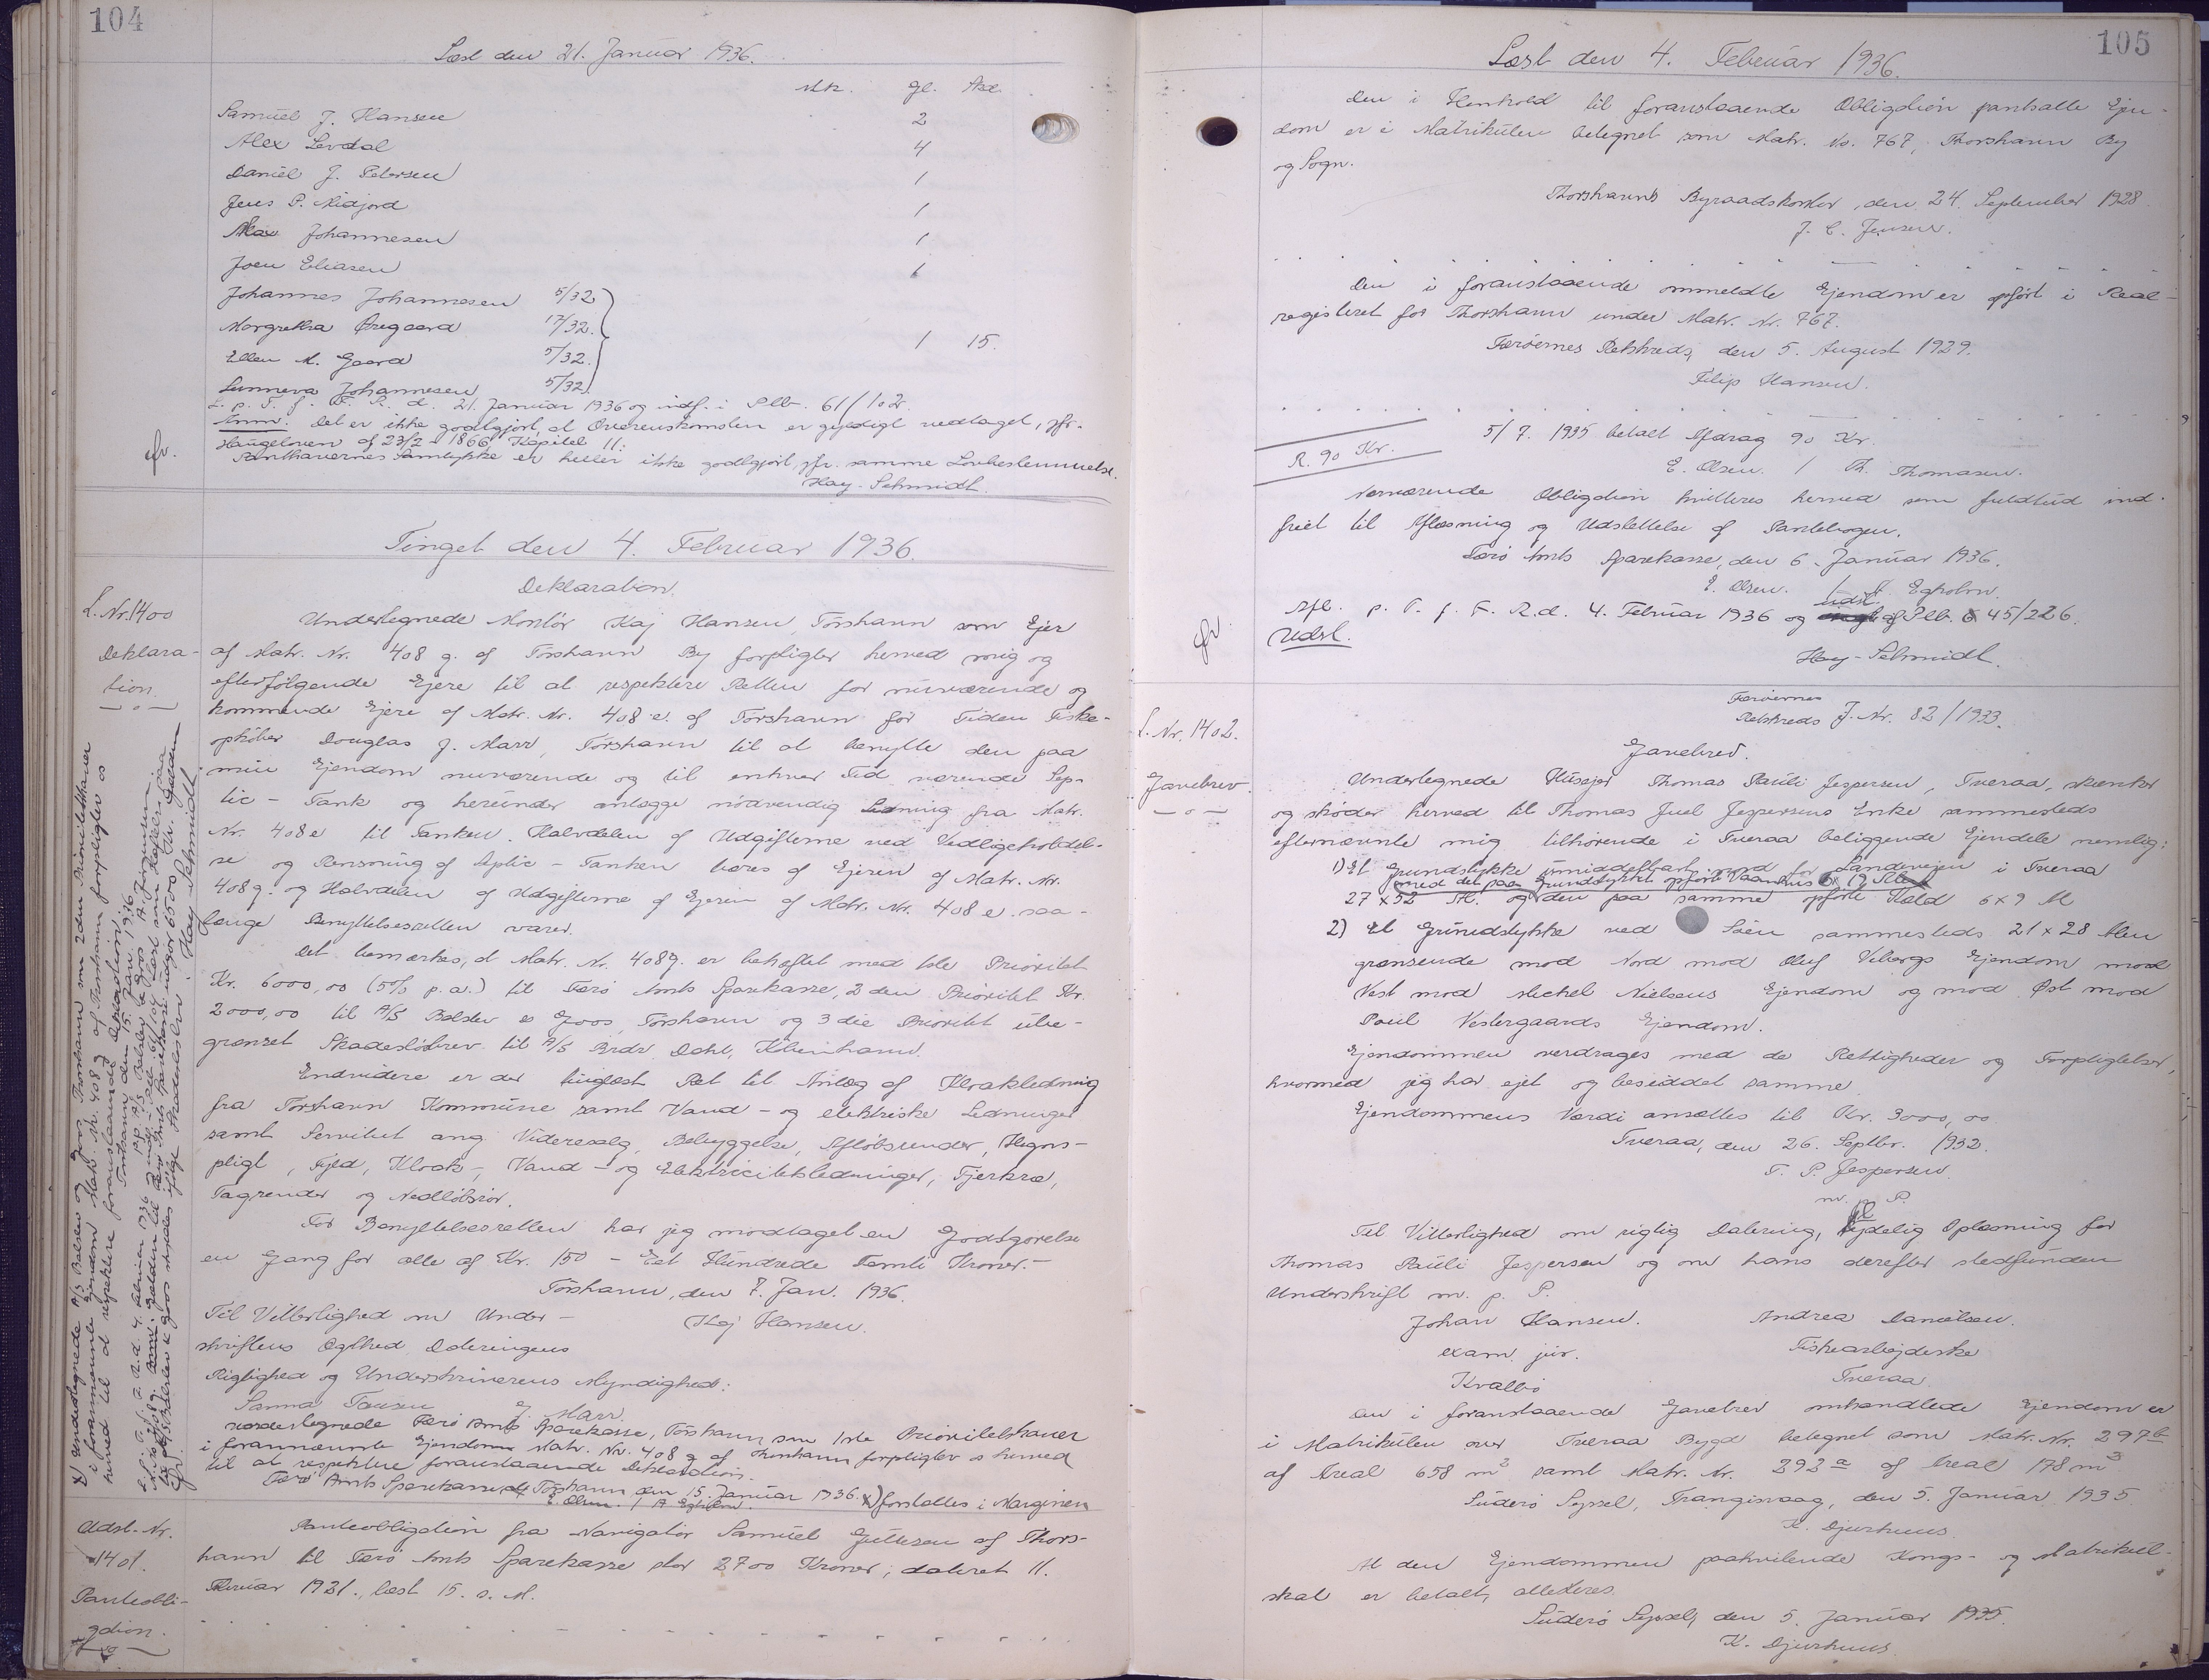 104
Læst den 21. Januar 1936.
Mk. Gl. Skd.
Samuel J. Hansen 2
Alex Lervdal 4
Daniel J. Petersen 1
Jens P. Midjord 1
Max Johannesen 1
Joen Eliasen 6
Johannes Johannesen 5/32
Margretha Øregaard 17/32
Ellen M. Gaard 5/32 1 15
Sunneva Johannesen 5/32
L. p. T. f. F. R. d. 21. Januar 1936 og indf. i Pltb. 61/102.
Anm: Det er ikke godtgjort, at Overenskomsten er gyldigt vedtaget, jfr.
Haugeloven af 23/2 - 1866, Kapitel 11:
Panthavernes Samtykke er heller ikke godtgjort, jfr. samme Lovbestemmelse.
Hay-Schmidt.
Tinget den 4. Februar 1936.
L. Nr. 1400
Deklara-
tion.
Deklaration.
Undertegnede Montør Kaj Hansen, Tórshavn som Ejer
af Matr. Nr. 408 g. af Tórshavn By forpligter herved mig og
efterfølgende Ejere til at respektere Retten for nuværende og
kommende Ejere af Matr. Nr. 408 e. af Tórshavn for Tiden Fiske-
opkøber Douglas J. Marr, Tórshavn til at benytte den paa
min Ejendom nuværende og til enhver Tid værende Sep-
tic - Tank og herunder anlægge nødvendig Ledning fra Matr.
Nr. 408 e til Tanken. Halvdelen af Udgifterne ved Vedligeholdel-
se og Rensning af Septic - Tanken bæres af Ejeren af Matr. Nr.
408 g. og Halvdelen af Udgifterne af Ejeren af Matr. Nr. 408 e. saa-
længe Benyttelsesretten varer.
Det bemærkes, at Matr. Nr. 408 g. er behæftet med 1ste Prioritet
Kr. 6000,00 (5% p.a.) til Færø Amts Sparekasse, 2den Prioritet Kr.
2000,00 til A/S Balslev & Goos, Tórshavn og 3die Prioritet ube-
grænset Skadesløsbrev til A/S Brdr. Dahl, København.
Endvidere er der tinglæst Ret til Anlæg af Kloakledning
fra Tórshavn Kommune samt Vand - og elektriske Ledninger
samt Servitut ang. Videresalg, Bebyggelse, Afløbsrender, Hegns-
pligt, Fjed, Kloak-, Vand - og Elektricitetsledninger, Fjerkræ,
Tagrender og Nedløbsrør.
For Benyttelsesretten har jeg modtaget en Godtgørelse
en Gang for alle af Kr. 150 - Eet Hundrede Femti Kroner.-
Tórshavn, den 7. Jan. 1936.
Til Vitterlighed om Under-
Kaj Hansen.
skriftens Ægthed, Dateringens
Rigtighed og Underskriverens Myndighed:
Sanna Joensen J. Marr.
Undertegnede Færø Amts Sparekasse, Tórshavn som 1ste Prioritetshaver
i forannævnte Ejendom Matr. Nr. 408 g af Thorshavn forpligter os herved
til at respektere foranstaaende Deklaration.
Færø Amts Sparekasse, Tórshavn den 15. Januar 1936. x) fortsættes i Marginen
E. Olsen. / A. Egholm.
x) Undertegnede A/S Balslev og Goos, Thorshavn som 2den Prioritetshaver
i forannævnte Ejendom Matr. Nr. 408 g af Thorshavn forpligter os
herved til at respektere foranstaaende Deklaration.
Thorshavn den 15. Jan. 1936
pp. A/S Balslev & Goos A. Jörgensen
L. p. T. f. F. R. d. 4. Februar 1936 og indf. i Pltb.
Hay-Schmidt.
Udsl. Nr.
1401.
Panteobli-
gation.
Panteobligation fra Navigatør Samuel Guttesen af Thors-
havn til Færø Amts Sparekasse stor 2700 Kroner; dateret 11.
Februar 1921., læst 15. s. M.
105
Læst den 4. Februar 1936.
Den i Henhold til foranstaaende Obligation pantsatte Ejen-
dom er i Matrikulen betegnet som Matr. No. 767, Thorshavn By
og Sogn.
Thorshavns Byraadskontor, den 24. September 1928.
J. C. Jensen.
Den i foranstaaende ommeldte Ejendom er opført i Real-
registeret for Thorshavn under Matr. Nr. 767.
Færøernes Retskreds, den 5. August 1929.
Filip Hansen.
R. 90 Kr.
5/7. 1935 betalt Afdrag 90 Kr.
E. Olsen. / Th. Thomasen.
Nærværende Obligation kvitteres herved som fuldtud ind-
friet til Aflæsning og Udslettelse af Pantebogen.
Færø Amts Sparekasse, den 6. Januar 1936.
E. Olsen. / A. Egholm.
Afl. p. T. f. F. R. d. 4. Februar 1936 og udsl. af Pltb. 45/226.
Udsl.
Hay-Schmidt.
L. Nr. 1402.
Gavebrev.
Færøernes
Retskreds J. Nr. 82/1933.
Gavebrev.
Undertegnede Husejer Thomas Pauli Jespersen, Tveraa, skenker
og skøder herved til Thomas Juel Jespersens Enke sammesteds
efternævnte mig tilhørende i Tveraa beliggende Ejendele nemlig:
1) Et Grundstykke umiddelbart nord for Landevejen i Tveraa
med det paa Grundstykket opførte Vaanhus
27 x 52 Al. og den paa samme opførte Kæld 6 x 9 Al
2) Et Grundstykke ved Søen sammesteds 21 x 28 Alen
grænsende mod Nord mod Oluf Vibergs Ejendom mod
Vest mod Mickel Nielsens Ejendom og mod Øst mod
Poul Vestergaards Ejendom.
Ejendommen overdrages med de Rettigheder og Forpligtelser,
hvormed jeg har ejet og besiddet samme
Ejendommens Værdi ansættes til Kr. 3000,00
Tveraa, den 26. Septbr. 1932.
T. P. Jespersen
m. p. P.
Til Vitterlighed om rigtig Datering, tydelig Oplæsning for
Thomas Pauli Jespersen og om hans derefter stedfunden
Underskrift m. p. P.
Johan Hansen. Andrea Danielsen.
exam. jur. Fiskearbejderske
Kvalbø Tveraa.
Den i foranstaaende Gavebrev omhandlede Ejendom er
i Matrikulen over Tveraa Bygd betegnet som Matr. Nr. 297b
af Areal 658 m² samt Matr. Nr. 292a af Areal 178 m²
Suderø Syssel, Trangisvaag, den 5. Januar 1935
K. Djurhuus.
At den Ejendommen paahvilende Kongs- og Matrikul-
skat er betalt, attesteres.
Suderø Syssel, den 5. Januar 1935.
K. Djurhuus.